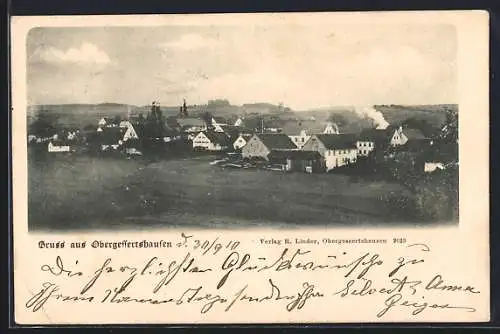 Gruss aus Obergessertshausen d. 20/9 10 Verlag R. Linder, Obergessertshausen 2623
Die herzlichsten Glückwünsche zu
Ihrem Namensfeste sendet Ihnen
Anna
Geiger